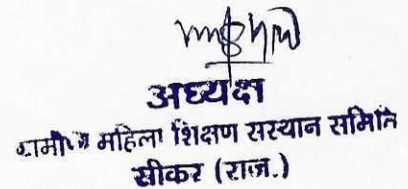 अध्यक्ष
ग्रामीण महिला शिक्षण संस्थान समिति
सीकर (राज.)